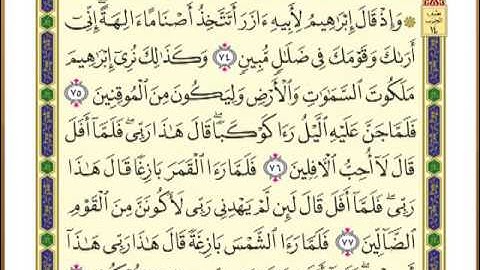 ۞ وَإِذْ قَالَ إِبْرَٰهِيمُ لِأَبِيهِ ءَازَرَ أَتَتَّخِذُ أَصْنَامًا ءَالِهَةً ۖ إِنِّىٓ
أَرَىٰكَ وَقَوْمَكَ فِى ضَلَٰلٍ مُّبِينٍ ٧٤ وَكَذَٰلِكَ نُرِىٓ إِبْرَٰهِيمَ
مَلَكُوتَ ٱلسَّمَٰوَٰتِ وَٱلْأَرْضِ وَلِيَكُونَ مِنَ ٱلْمُوقِنِينَ ٧٥
فَلَمَّا جَنَّ عَلَيْهِ ٱلَّيْلُ رَءَا كَوْكَبًا ۖ قَالَ هَٰذَا رَبِّى ۖ فَلَمَّآ أَفَلَ
قَالَ لَآ أُحِبُّ ٱلْءَافِلِينَ ٧٦ فَلَمَّا رَءَا ٱلْقَمَرَ بَازِغًا قَالَ هَٰذَا
رَبِّى ۖ فَلَمَّآ أَفَلَ قَالَ لَئِن لَّمْ يَهْدِنِى رَبِّى لَأَكُونَنَّ مِنَ ٱلْقَوْمِ
ٱلضَّآلِّينَ ٧٧ فَلَمَّا رَءَا ٱلشَّمْسَ بَازِغَةً قَالَ هَٰذَا رَبِّى هَٰذَآ